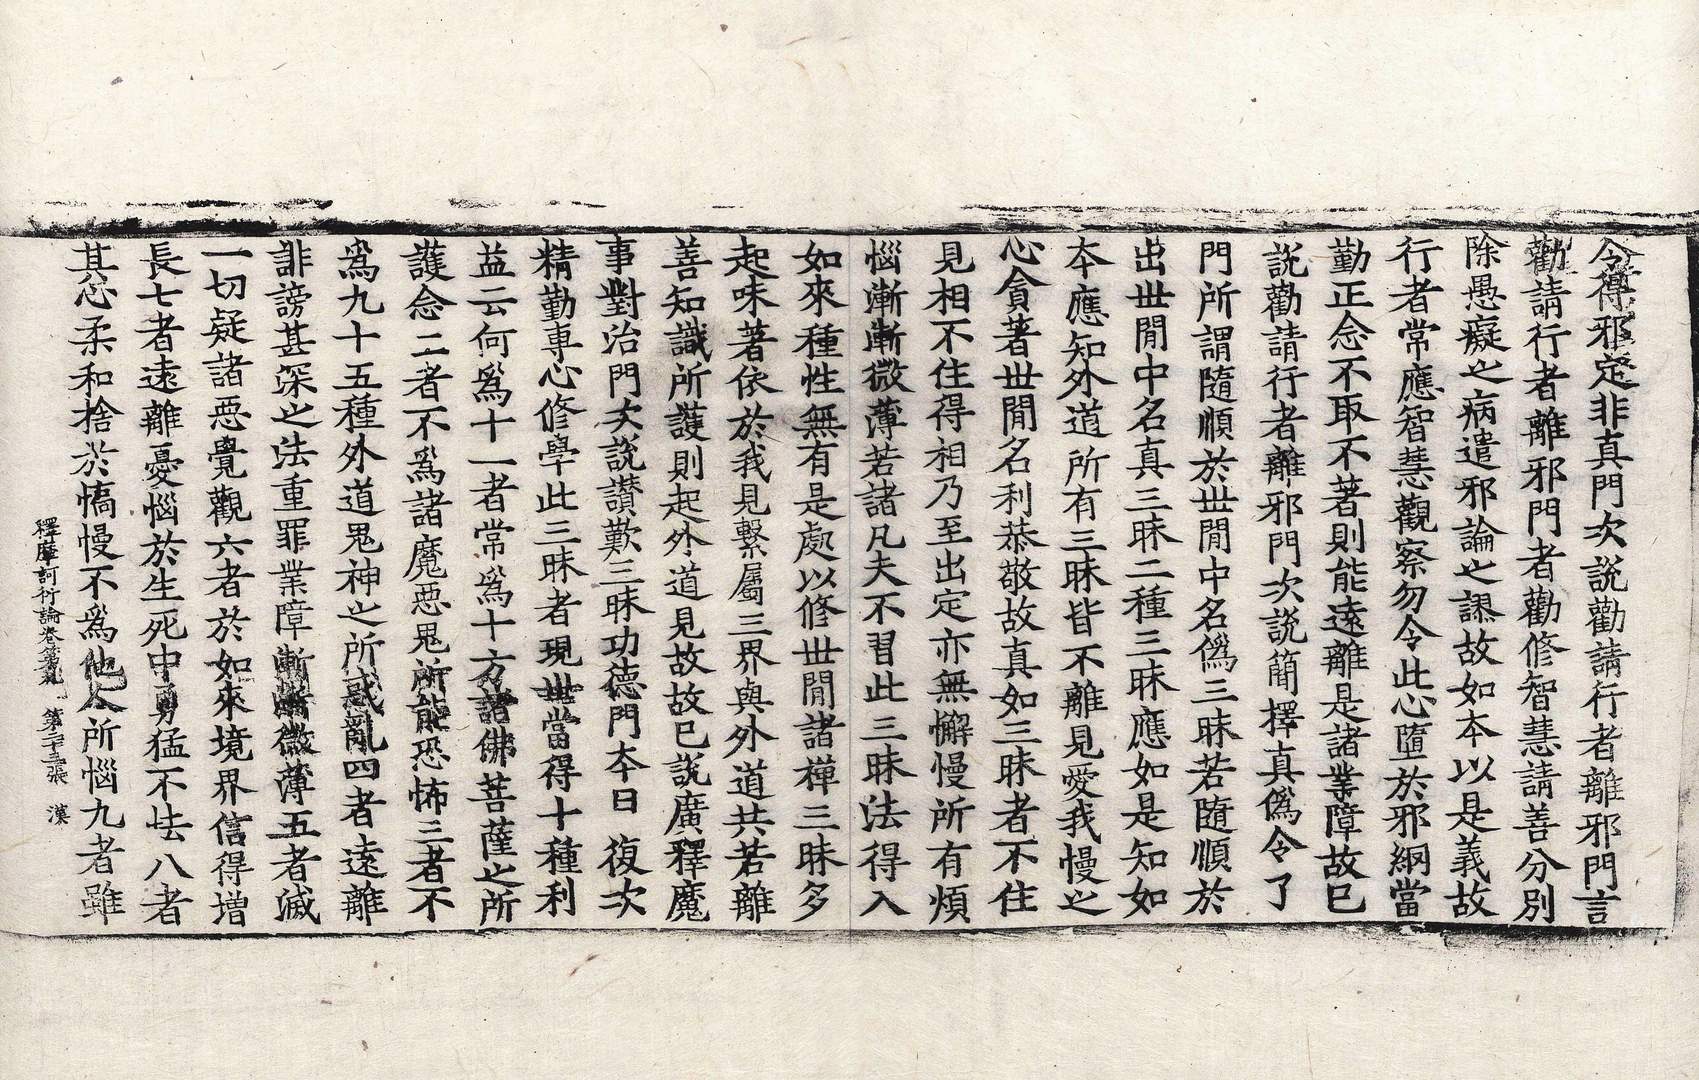 令得邪定非真門次說勸請行者離邪門言
勸請行者離邪門者勸修智慧請善分別
除愚癡之病遣邪論之謬故如本以是義故
行者常應智慧觀察勿令此心墮於邪網當
勤正念不取不著則能遠離是諸業障故已
說勸請行者離邪門次說簡擇真僞令了
門所謂隨順於世閒中名僞三昧若隨順於
出世閒中名真三昧二種三昧應如是知如
本應知外道所有三昧皆不離見愛我慢之
心貪著世閒名利恭敬故真如三昧者不住
見相不住得相乃至出定亦無懈慢所有煩
惱漸漸微薄若諸凡夫不習此三昧法得入
如來種性無有是處以修世閒諸禪三昧多
起味著依於我見繫屬三界與外道共若離
善知識所護則起外道見故故已說廣釋魔
事對治門次說讃歎三昧功德門本曰復次
精勤專心修學此三昧者現世當得十種利
益云何爲十一者常爲十方諸佛菩薩之所
護念二者不爲諸魔惡鬼所能恐怖三者不
爲九十五種外道鬼神之所惑亂四者遠離
誹謗甚深之法重罪業障漸漸微薄五者滅
一切疑諸惡覺觀六者於如來境界信得增
長七者遠離憂惱於生死中勇猛不怯八者
其心柔和捨於憍慢不爲他人所惱九者雖
釋摩訶衍論卷第九 第二十三張 漢